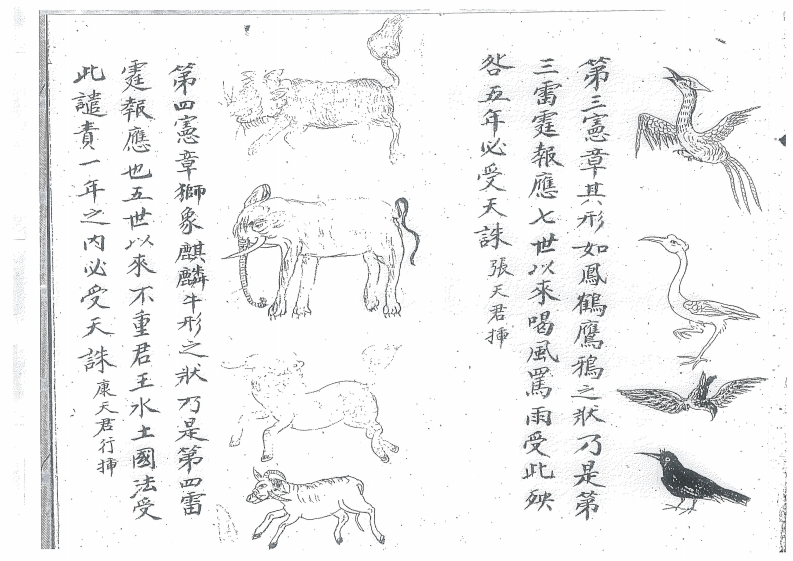 第三憲章其形如鳳鶴鷹鴉之狀乃是第
三雷霆報應七世以來喝風罵雨受此殃
咎五年必受天誅張天君㨒
第四憲章獅象麒麟牛形之狀乃是第四雷
霆報應也五世以來不重君王水土國法受
此譴責一年之內必受天誅康天君行㨒